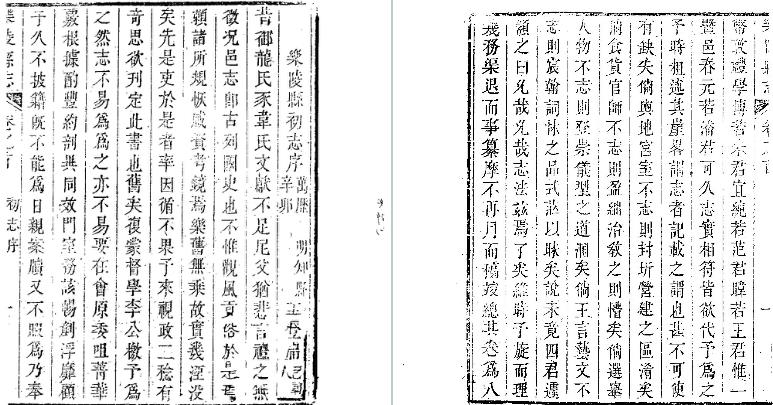 樂陵縣初志序 萬曆辛卯 明知縣 王登庸
昔御龍氏豕韋氏文獻不足尼父猶悲言禮之無
徵况邑志郎古列國史也不惟觀風資俗於是焉
賴諸所規恢咸資考鏡焉樂舊無乘故實幾湮没
矣先是吏於是者率因循不果予來視政二稔有
奇思欲刊定此書也舊矣復蒙督學李公檄予爲
之然志不易爲爲之亦不易要在會原委咀菁華
覈根據酌豐約剖異同效門宗旁該暢劊浮靡顧
予久不披籍旣不能爲日親案牘又不照爲乃奉
樂陵縣志 卷之首 初志序 一
幣敦禮學博若朱君宜純若范君瞳若王君惟一
暨邑春元若潘君可久志實相符皆欲代予爲之
予時粗述其崖畧謂志者記載之謂也甚不可使
有缺失倘輿地宮室不志則封圻營建之區淆矣
倘食貨官師不志則盈縮治教之則懵矣倘選舉
人物不志則登崇儀型之道湮矣倘王言藝文不
志則宸翰詞林之品式訖以昧矣說未竟四君遽
頷之曰允哉允哉志法茲焉了矣維時予旋而理
義務渠退而事纂摩不再月而稿竣總其卷爲八